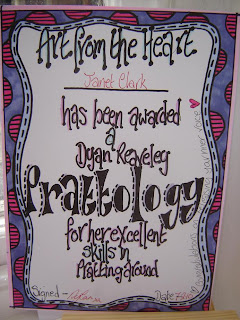 Art from the Heart
Janet Clark
has been awarded
a
Dyan Reaveley
Prattology
for her excellent
skills in
Pratting around
Signed -
Date